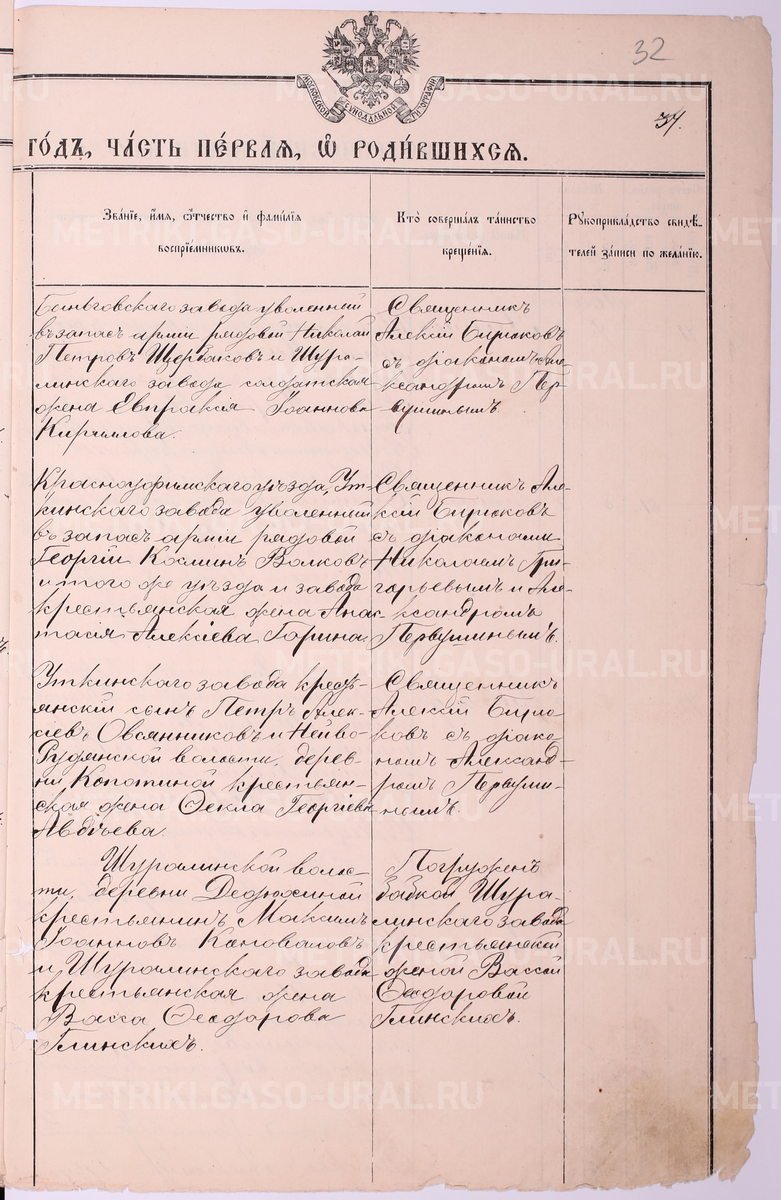 32
34.
МОСКОВСКОЙ СѴНОДАЛЬНОЙ ТИПОГРАФІИ
ГО́ДЪ, ЧА́СТЬ ПЕ́РВАЯ, Ѽ РОДИ́ВШИХСЯ.
Зва́нїе, и́мя, о́тчество и҆ фами́лїя
воспрїе́мниковъ.
Кто̀ соверша́лъ та́инство
креще́нїя.
Рукоприкла́дство свидѣ́-
телей за́писи по жела́нїю.
Быньговскаго завода уволенный
въ запасъ арміи рядовой Николай
Петровъ Щербаковъ и Шура-
линскаго завода солдатская
жена Евпраксія Іоаннова
Кириллова.
Священникъ
Алексій Бирюковъ
съ діакономъ Але-
ксандромъ Пер-
вушинымъ.
Красноуфимскаго уѣзда, Ут-
кинскаго завода уволенный
въ запасъ арміи рядовой
Георгій Косминъ Волковъ
и того же уѣзда и завода
крестьянская жена Анас-
тасія Алексіева Гарина.
Священникъ Але-
ксій Бирюковъ
съ діаконами
Николаемъ Гри-
горьевымъ и Але-
ксандромъ
Первушинымъ.
Уткинскаго завода кресть-
янскій сынъ Петръ Алек-
сіевъ Овсянниковъ и Нейво-
Рудянской волости, дерев-
ни Копотиной крестьян-
ская жена Ѳекла Георгіева
Авдѣева.
Священникъ
Алексій Бирю-
ковъ съ діако-
номъ Александ-
ромъ Первуши-
нымъ.
Шуралинской волос-
ти, деревни Дедюхиной
крестьянинъ Максимъ
Іоанновъ Коноваловъ
и Шуралинскаго завода
крестьянская жена
Васса Ѳеодорова
Глинскихъ.
Погруженъ
бабкой Шура-
линскаго завода
крестьянской
женой Вассой
Ѳеодоровой
Глинскихъ.
METRIKI.GASO-URAL.RU